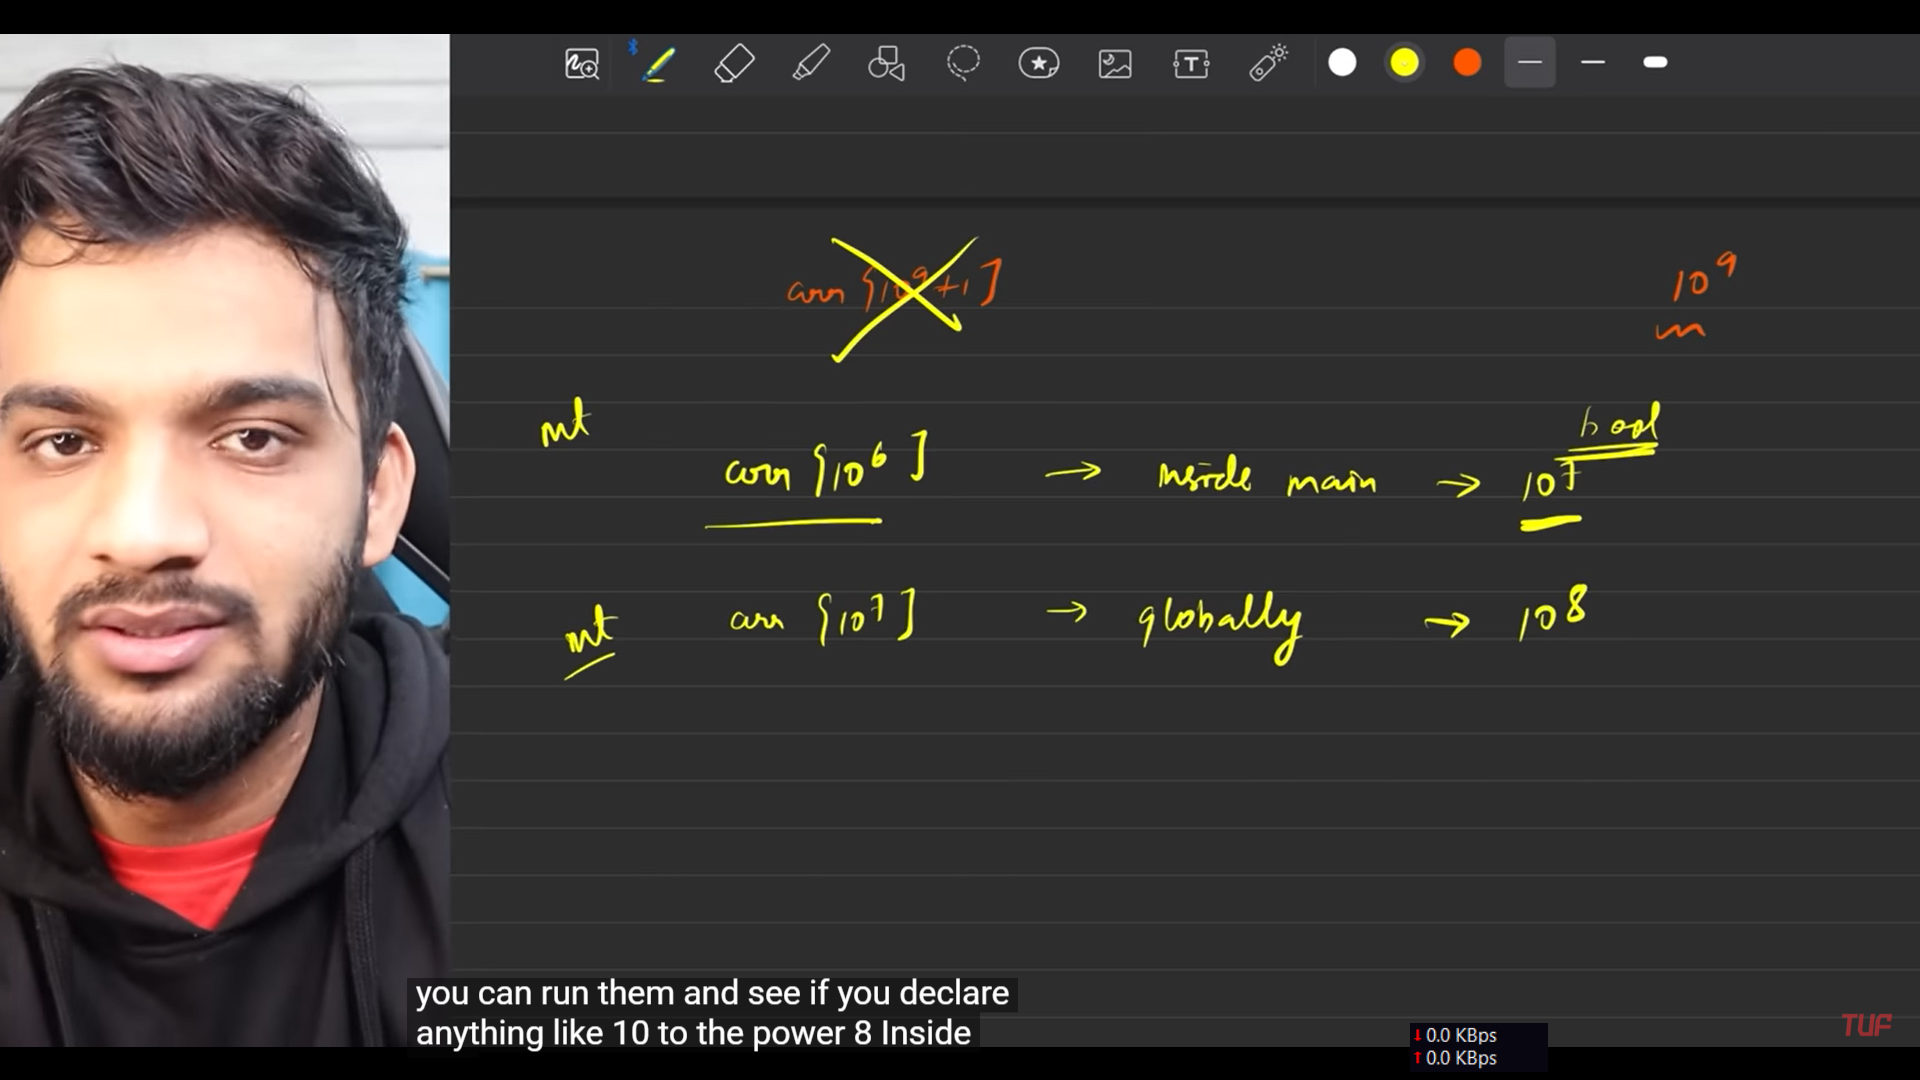 arr [10⁹+1]
10⁹
int
bool
arr [10⁶] → inside main → 10⁷
int arr [10⁷] → globally → 10⁸
you can run them and see if you declare
anything like 10 to the power 8 Inside
TUF
↓ 0.0 KBps
↑ 0.0 KBps